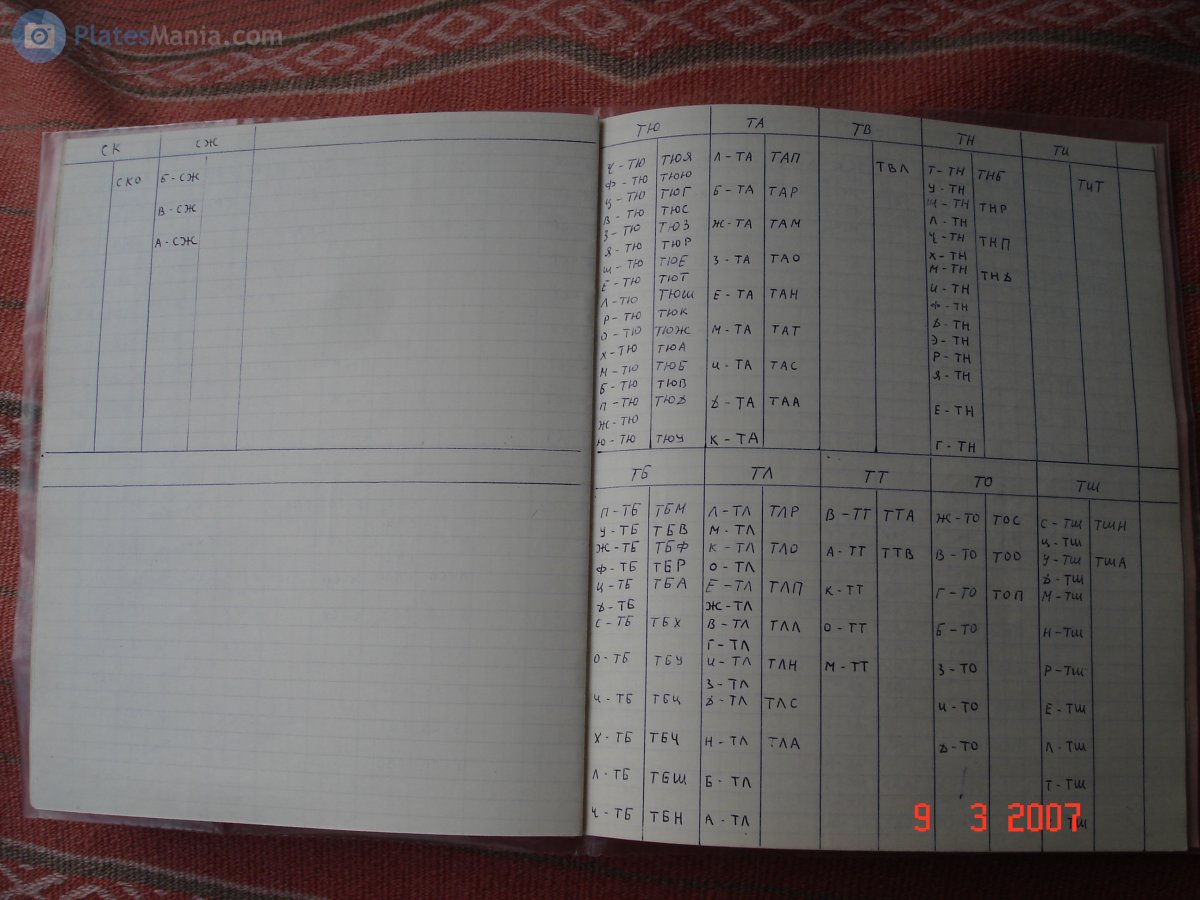 PlatesMania.com
СК СЖ
СКО Б-СЖ
В-СЖ
А-СЖ
ТЮ ТА ТВ ТН ТИ
Ч-ТЮ ТЮЯ Л-ТА ТАП ТВЛ Т-ТН ТНБ ТИТ
Ф-ТЮ ТЮЮ У-ТН
Ц-ТЮ ТЮГ Б-ТА ТАР Ш-ТН ТНР
В-ТЮ ТЮС Л-ТН
З-ТЮ ТЮЗ Ж-ТА ТАМ Ч-ТН ТНП
Я-ТЮ ТЮР Х-ТН
Щ-ТЮ ТЮЕ З-ТА ТАО М-ТН ТНД
Е-ТЮ ТЮТ И-ТН
Л-ТЮ ТЮШ Е-ТА ТАН Ф-ТН
Р-ТЮ ТЮК Д-ТН
О-ТЮ ТЮЖ М-ТА ТАТ Э-ТН
Х-ТЮ ТЮА Р-ТН
М-ТЮ ТЮБ И-ТА ТАС Я-ТН
Б-ТЮ ТЮВ
П-ТЮ ТЮД Д-ТА ТАА Е-ТН
Ж-ТЮ
Ю-ТЮ ТЮУ К-ТА Г-ТН
ТБ ТЛ ТТ ТО ТШ
П-ТБ ТБМ Л-ТЛ ТЛР В-ТТ ТТА Ж-ТО ТОС С-ТШ ТШН
У-ТБ ТБВ М-ТЛ Ц-ТШ
Ж-ТБ ТБФ К-ТЛ ТЛО А-ТТ ТТВ В-ТО ТОО У-ТШ ТША
Ф-ТБ ТБР О-ТЛ Д-ТШ
Ц-ТБ ТБА Е-ТЛ ТЛП К-ТТ Г-ТО ТОП М-ТШ
Д-ТБ Ж-ТЛ
С-ТБ ТБХ В-ТЛ ТЛЛ О-ТТ Б-ТО Н-ТШ
Г-ТЛ
О-ТБ ТБУ И-ТЛ ТЛН М-ТТ З-ТО Р-ТШ
З-ТЛ
И-ТБ ТБЦ Д-ТЛ ТЛС И-ТО Е-ТШ
Х-ТБ ТБЧ Н-ТЛ ТЛА Д-ТО Л-ТШ
Л-ТБ ТБШ Б-ТЛ Т-ТШ
Ч-ТБ ТБН А-ТЛ
9 3 2007